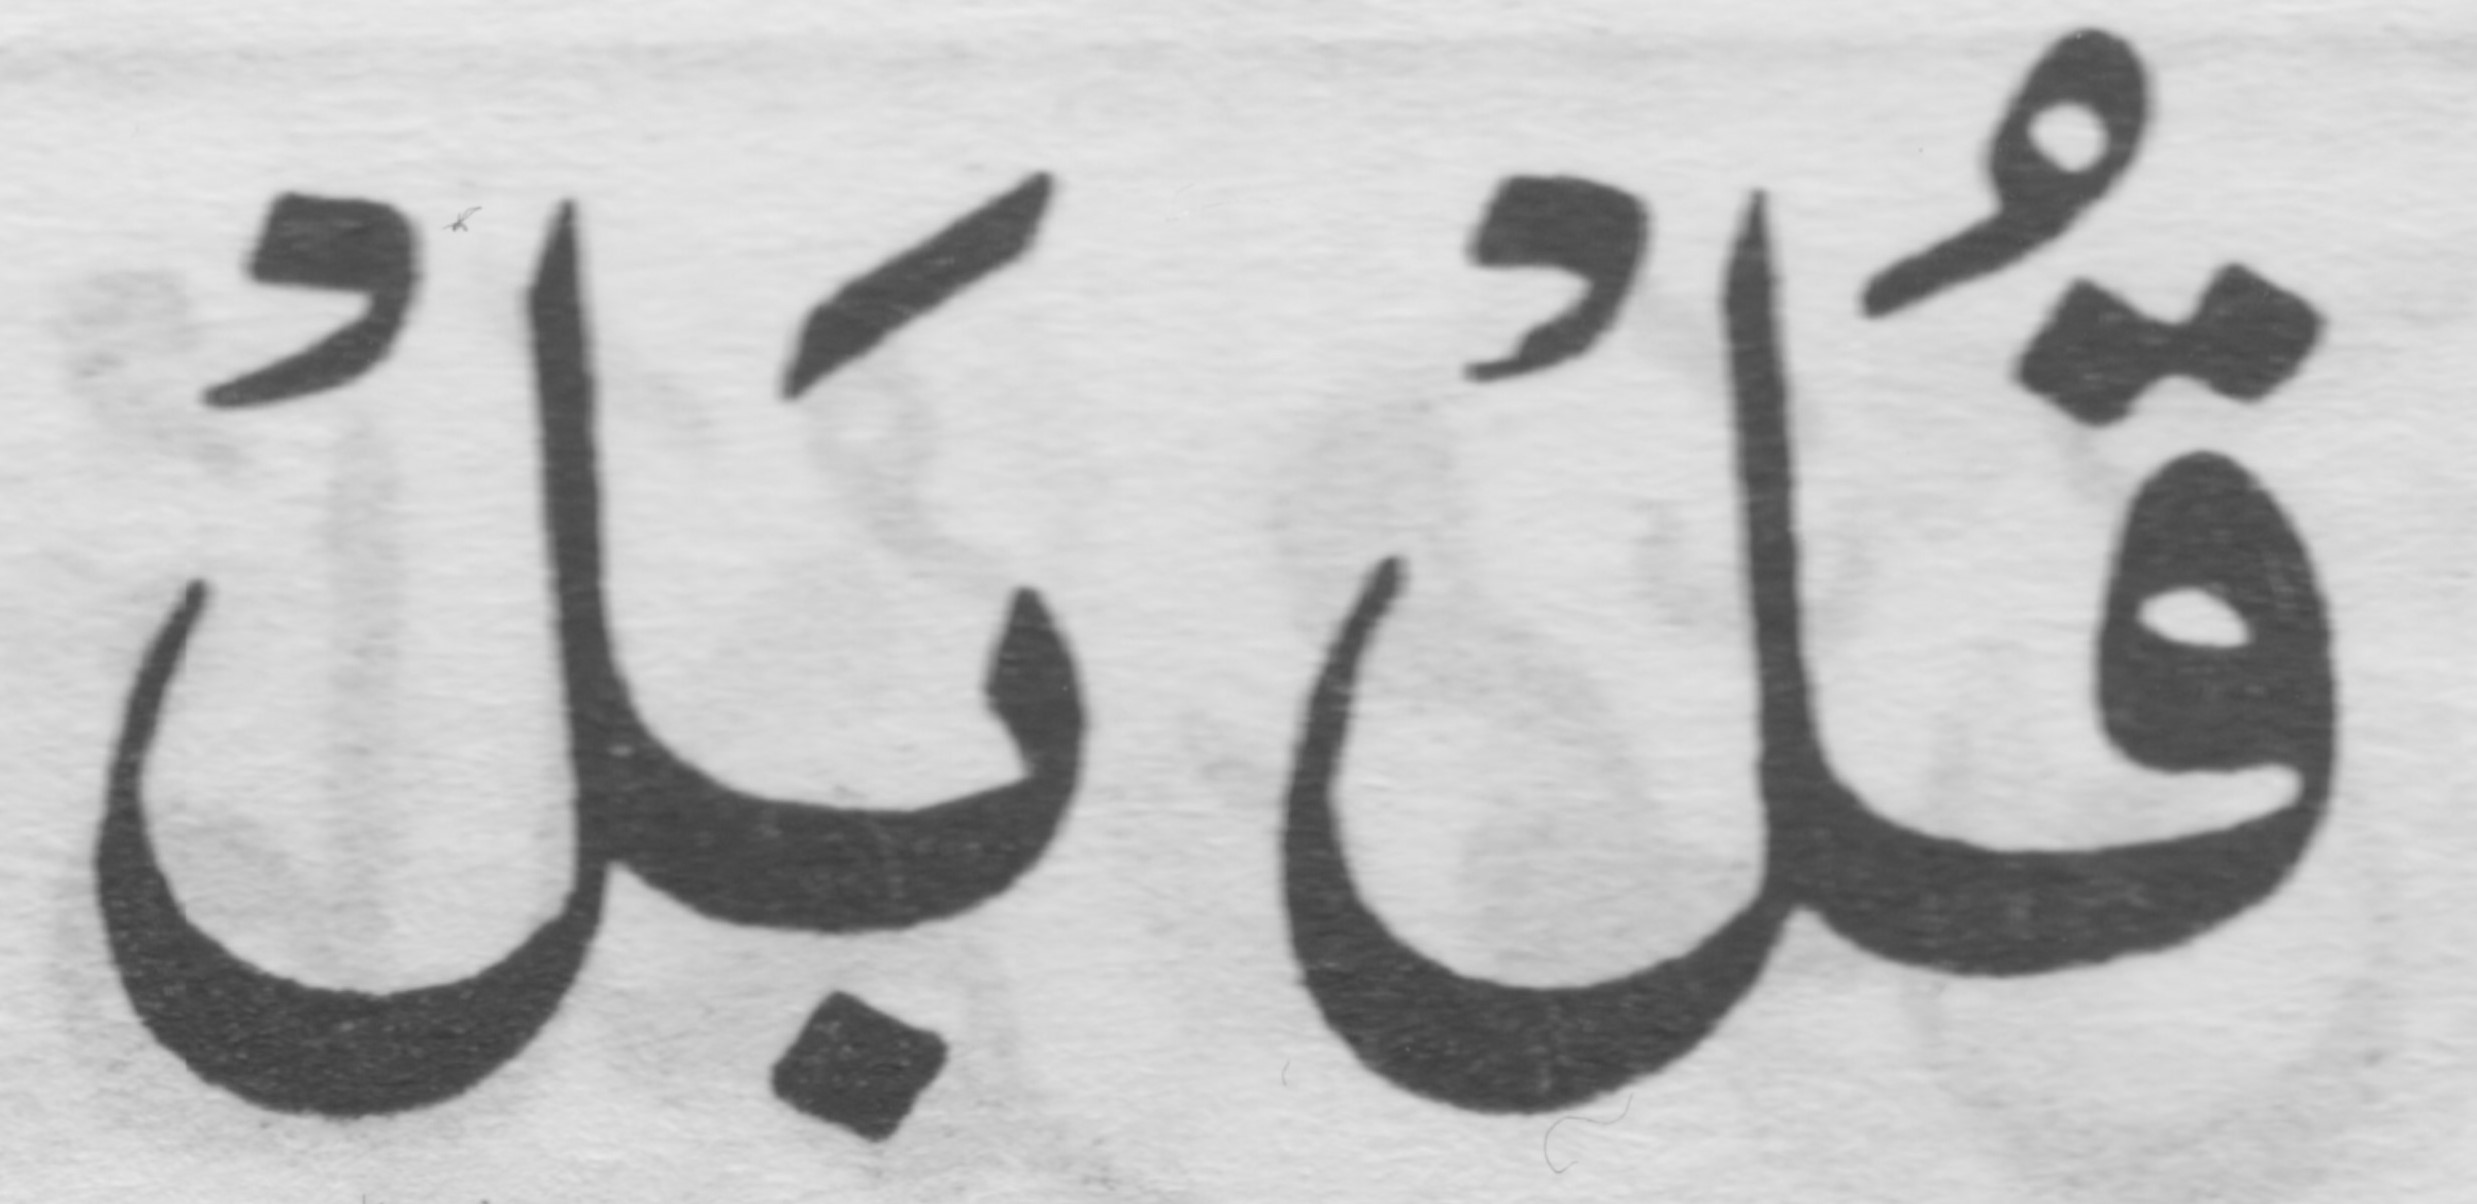 قُلْ بَلْ